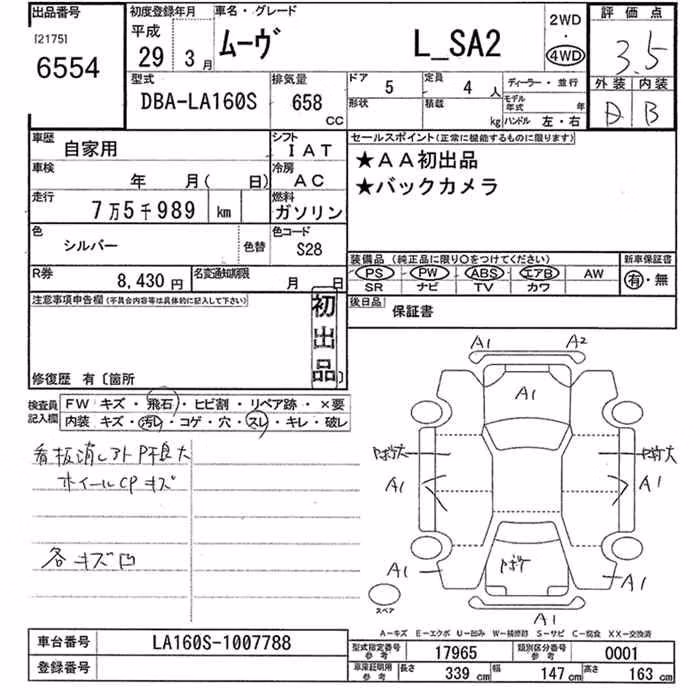 出品番号
[2175]
6554
初度登録年月
平成
29年 3月
車名・グレード
ムーヴ L_SA2
2WD
・
4WD
評価点
3.5
外装 内装
B
型式
DBA-LA160S
排気量
658
CC
ドア 5
定員 4 人
ディーラー・並行
形状
積載 kg
モデル年式 年
ハンドル 左・右
車歴 自家用
シフト IAT
車検 年 月( 日)
冷房 AC
走行 7万5千989 km
燃料 ガソリン
色 シルバー
色替
色コード S28
R券 8,430 円
名変通知期限 月 日
セールスポイント(正常に機能するものに限ります)
★AA初出品
★バックカメラ
装備品 (純正品に限り○をつけてください)
新車保証書
PS PW ABS エアB AW
有・無
SR ナビ TV カワ
後日品 保証書
注意事項申告欄(不具合内容等は具体的に記入して下さい)
初出品
修復歴 有〔箇所 〕
検査員記入欄
FW キズ・飛石・ヒビ割・リペア跡・×要
内装 キズ・汚レ・コゲ・穴・スレ・キレ・破レ
看板消し跡 P不良大
ホイールCPキズ
各キズ凹
A1 A2
A1
Pボケ大
A1
A1
Pボケ
A1
A1
A1
スペア
A-キズ E-エクボ U-凹み W-補修跡 S-サビ C-腐食 XX-交換済
車台番号 LA160S-1007788
登録番号
型式指定番号 参考 17965
類別区分番号 参考 0001
車庫証明用 参考 長さ 339 cm 幅 147 cm 高さ 163 cm